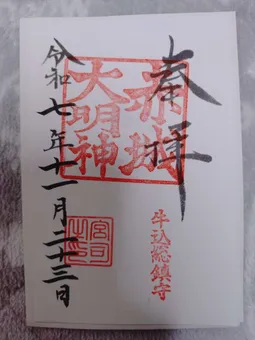 奉拝
赤城
大明神
牛込総鎮守
宮司
之印
令和七年十一月二十三日